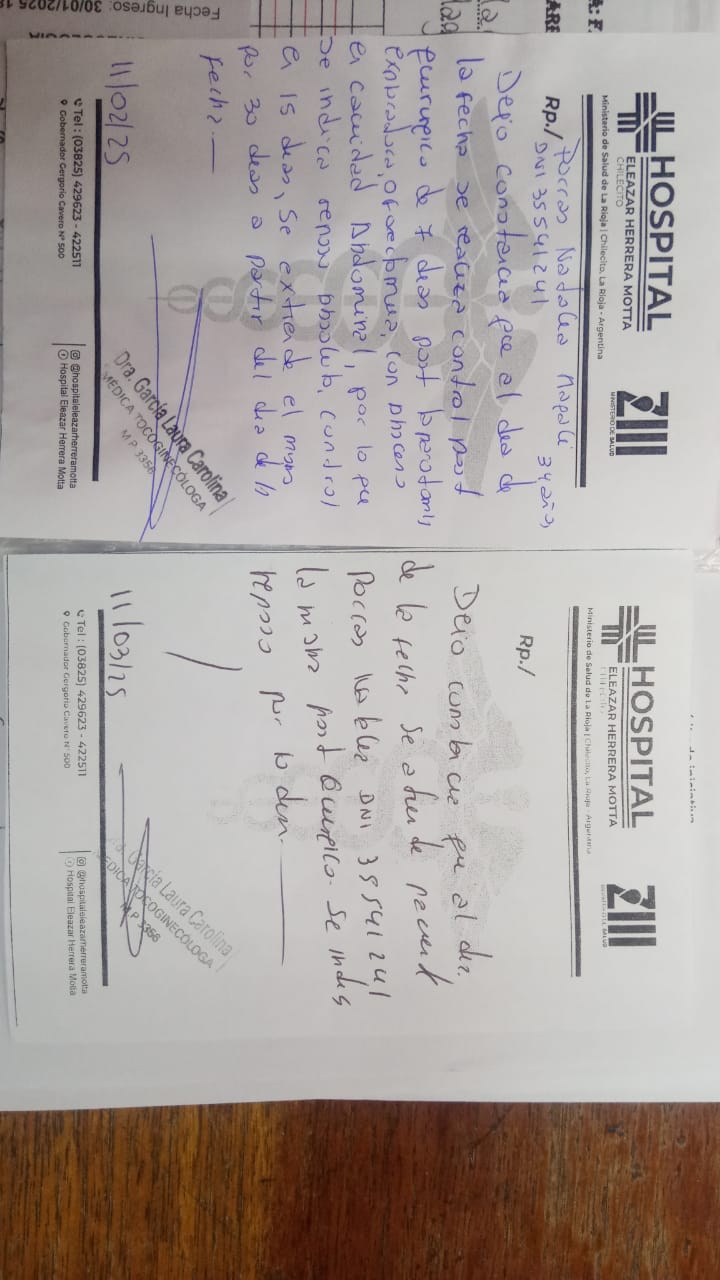 Fecha Ingreso: 30/01/2025
HOSPITAL
ELEAZAR HERRERA MOTTA
CHILECITO
MINISTERIO DE SALUD
Ministerio de Salud de La Rioja | Chilecito, La Rioja - Argentina
Rp./
Porras Natalia Magali 34 años
DNI 35541241
Dejo constancia que el dia de
la fecha se realiza control post
quirurgico de 7 dias post laparotomia
exploradora, con
en cavidad Abdominal, por lo que
se indica reposo absoluto, control
en 15 dias, se extiende el mismo
por 30 dias a partir del dia de la
fecha.—
11/02/25
Dra. García Laura Carolina
MÉDICA TOCOGINECÓLOGA
M.P. 3356
Tel : (03825) 429623 - 422511
Gobernador Gergorio Cavero N° 500
@hospitaleleazarherreramotta
Hospital Eleazar Herrera Motta
HOSPITAL
ELEAZAR HERRERA MOTTA
CHILECITO
MINISTERIO DE SALUD
Ministerio de Salud de La Rioja | Chilecito, La Rioja - Argentina
Rp./
Dejo constancia que al dia
de la fecha se atiende paciente
Porras DNI 35541241
la misma post Quirurgico. Se indica
reposo por
11/03/25
García Laura Carolina
MÉDICA TOCOGINECÓLOGA
M.P. 3356
Tel : (03825) 429623 - 422511
Gobernador Gergorio Cavero N° 500
@hospitaleleazarherreramotta
Hospital Eleazar Herrera Motta